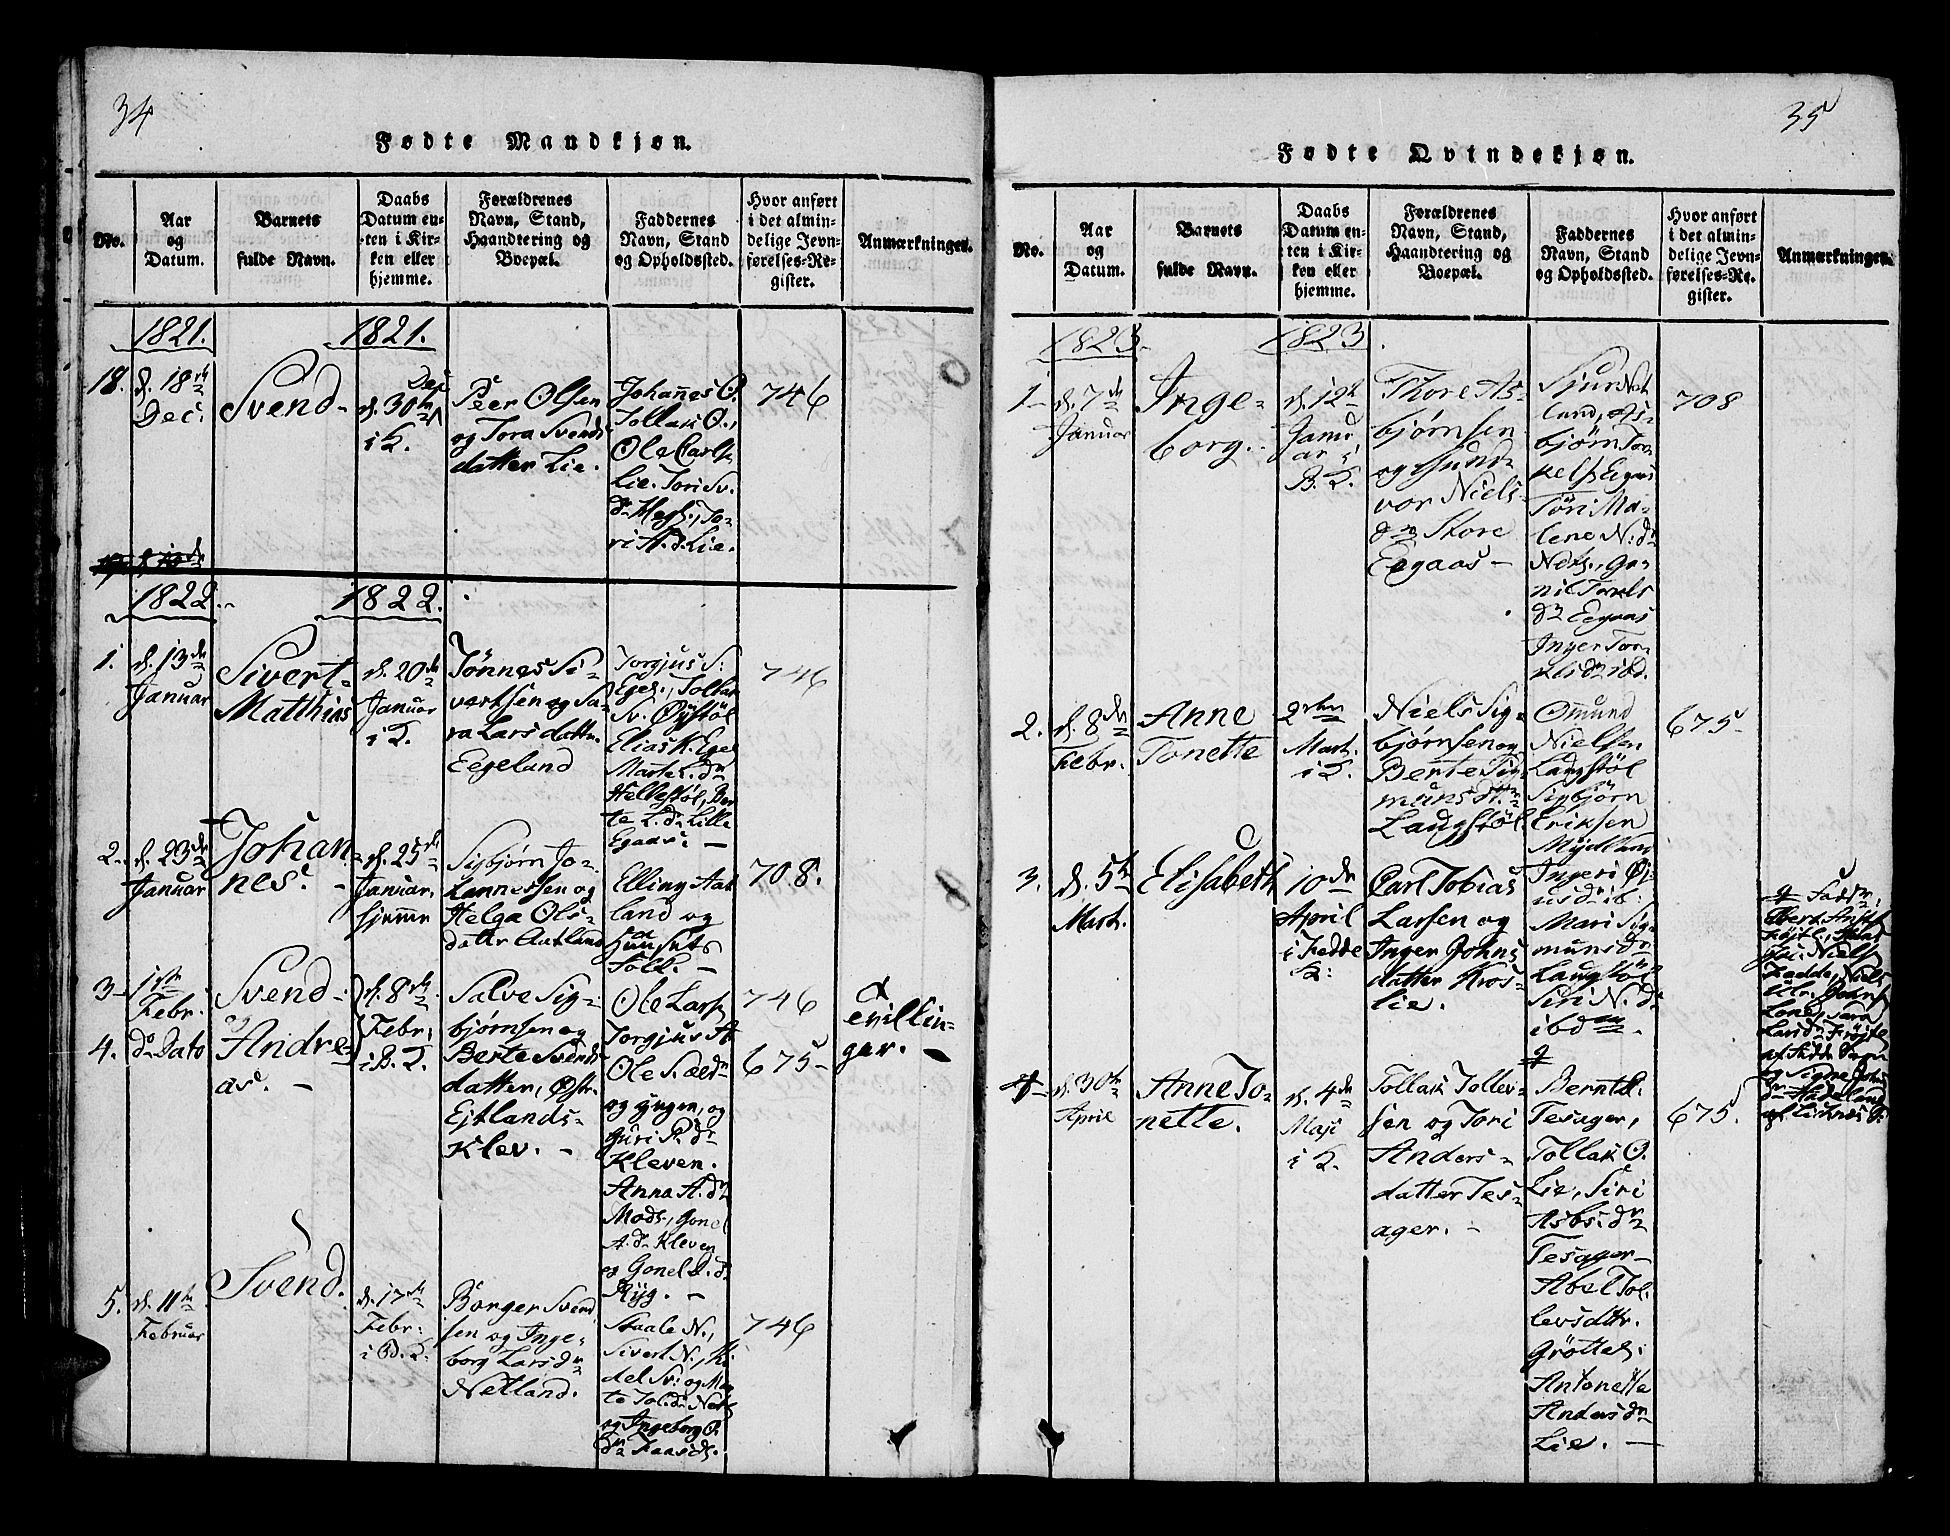 34
Fødte Mandkjøn.
No.
Aar
og
Datum.
Barnets
fulde Navn.
Daabs
Datum en-
ten i Kir-
ken eller
hjemme.
Forældrenes
Navn, Stand,
Haandtering og
Boepæl.
Faddernes
Navn, Stand
og Opholdssted.
Hvor anført
i det almin-
delige Jevn-
førelses-Re-
gister.
Anmærkninger.
1821.
1821.
18.
d. 18de
Dec.
Svend
Dec
d. 30te
i K.
Peer Olsen
og Tora Svends
datter Lie.
Johannes O.
Tollak O.,
Ole Carls
Lie. Tori Sv.
dr Hegl., To-
ri A. d. Lie.
746
1822.
1822.
1.
d. 13de
Januar
Sivert
Matthias
d. 20de
Januar
i K.
Tönnes Si-
vertsen og Sa-
ra Lars datter
Eegeland
Torgjus S:
Egel., Tollak
Sv. Øystöl
Elias K. Egel
Marte L. dr
Hellestöl, Ber
te L. dr Lille
Egaas: -
746
2.
d. 23de
Januar
Johan
nes. -
d. 25de
Januar.
hjemme
Sigbjörn Jo-
hannessen og
Helga Ols-
datter Aatland
Elling Aat
land og
Huusets
Folk. -
708.
3-
1ste
Febr.
Svend
og
4.
do Dato
Andre-
as. -
d. 8de
Febr.
i B. K.
Salve Sig-
bjørnsen og
Berte Svends
datter, Østr.
Ejtlands-
Klev. -
Ole Lars
Torgjus A
Ole S. aldr
og yngre, og
Guri P. dr
Kleven.
Anna A. dr
Mods., Gonel
A. dr Kleven
og Gonel P. dr
Ryg. -
746
675-
Tvillin-
ger. -
5.
d. 11te
Februar
Svend.
d. 17de
Febr.
i Bd. K.
Borger Svend
sen og Inge-
borg Lars dr
Netland.
Staale N.,
Sivert N., Ki
del Sv: og Mar
te Tol. dr Netl
og Ingeborg O.
dr Faasdl.
746
35
Fødte Qvindekjøn.
No.
Aar
og
Datum.
Barnets
fulde Navn.
Daabs
Datum en-
ten i Kir-
ken eller
hjemme.
Forældrenes
Navn, Stand,
Haandtering og
Boepæl.
Faddernes
Navn, Stand
og Opholdssted.
Hvor anført
i det almin-
delige Jevn-
førelses-Re-
gister.
Anmærkninger.
1823.
1823.
1-
d. 7de
Januar
Inge-
borg.
d. 12te
Janu
ar i
B. K.
Thore As-
bjørnsen
og Gund-
vor Niels-
dr Store
Eegaas -
Sjur Net
land, As-
bjørn Tor
kels Egaas
Töri Ma-
lene N. dr
Netl., Go-
nil Torkels
dr Eegaas
Inger Tor-
kels dr ibd.
708
2.
d. 8de
Febr.
Anne
Tonette
2den
Mart.
i K.
Niels Sig-
bjørnsen og
Berte Sig
muns dtr
Laugstöl.
Omund
Nielsen
Laugstöl
Sigbjörn
Eriksen
Mydland
Ingeri Øj-
us dr ib:
Mari Sig-
muns dr
Laugstöl
Siri N. dr
ibdm.
675-
3.
d. 5te
Mart.
Elisabeth
10de
April
i Fedde
K:
Carl Tobias
Larsen og
Inger Johns
datter Kros-
lie.
Fadd.:
4
d. 30te
April
Anne To-
nette.
d. 4de
Maji
i K.
Tollak Tollev-
sen og Tori
Anders-
datter Tes-
ager. -
Bernt L.
Tesager,
Tollak O.
Lie, Siri
Asbs: dr
Tesager-
Abel Tol-
levsdtr.
Grötten:
Antonette
Anders dr
Lie. -
675.